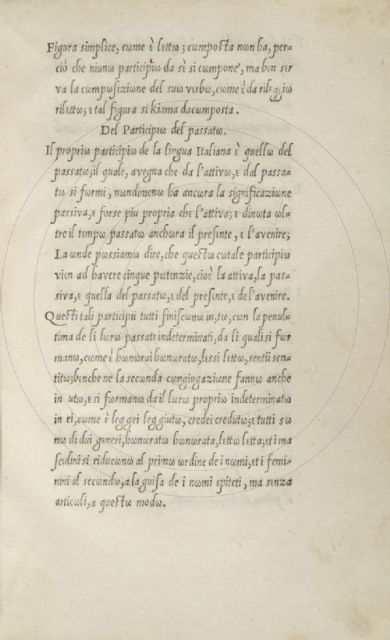 Figura simplice, cωme ὲ lettω; cωmpωsta nωn ha, per-
ciò che niunω participiω da sè si cωmpωne, ma ben ser
va la cωmpωsiziωne del suω verbω, cωme ὲ da rileggiω
rilettω; ε tal figura si kiama dacωmpωsta.
Del Participiω del passatω.
Il propriω participiω de la lingua Italiana ὲ quellω del
passatω; il quale, avegna che da l'attivω, ε dal passa-
tω si fωrmi, nωndimenω ha ancωra la significaziωne
passiva, ε fωrse piu propria che l'attiva; ε dinωta ωl-
tre il tempω passatω anchωra il presente, ε l'avenire;
La ωnde pωssiamω dire, che questω cωtale participiω
vien ad havere cinque pωtenzie, ciοὲ la attiva, la pas-
siva, ε quella del passatω, ε del presente, ε de l'avenire.
Questi tali participii tutti finiscωnω in, tω, cωn la penul-
tima de li lωrω passati indeterminati, da li quali si fωr
manω, cωme i hωnωrai hωnωratω, lessi lettω, sentii sen-
titω; benche ne la secωnda cωngiugaziωne fannω anche
in utω; ε si fωrmanω da il lωrω propriω indeterminatω
in ei, cωme i leggei leggiutω, credei credutω; ε tutti sω
nω di dui generi, hωnωratω hωnωrata, lettω letta; et i ma
sculini si riducωnω al primω ωrdine de i nωmi, et i femi-
nini al secωndω, a la guisa de i nωmi epiteti, ma senza
articωli, a questω mωdω.